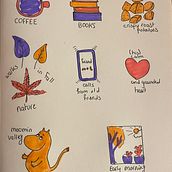 COFFEE
BOOKS
crispy roast
potatoes
walks
in fall
nature
calls
from old
friends
and grounded
heart
moomin
valley
Early morning